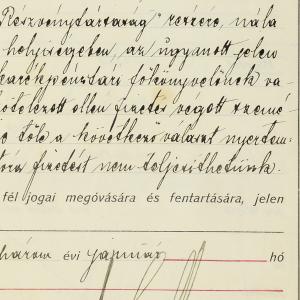 Részvénytártaság" részére, nála
helyiségében, az ugyanott jelen
takarékpénztári főkönyvelőnek va-
kötelezett ellen fizetés végett szemé-
tőle a következő választ nyertem-
fizetést nem teljesíthetünk.
fél jogai megóvására és fentartására, jelen
három évi január hó